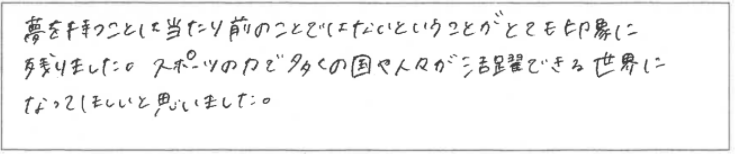 夢を持つことは当たり前のことではないということがとても印象に
残りました。スポーツの力で多くの国や人々が活躍できる世界に
なってほしいと思いました。